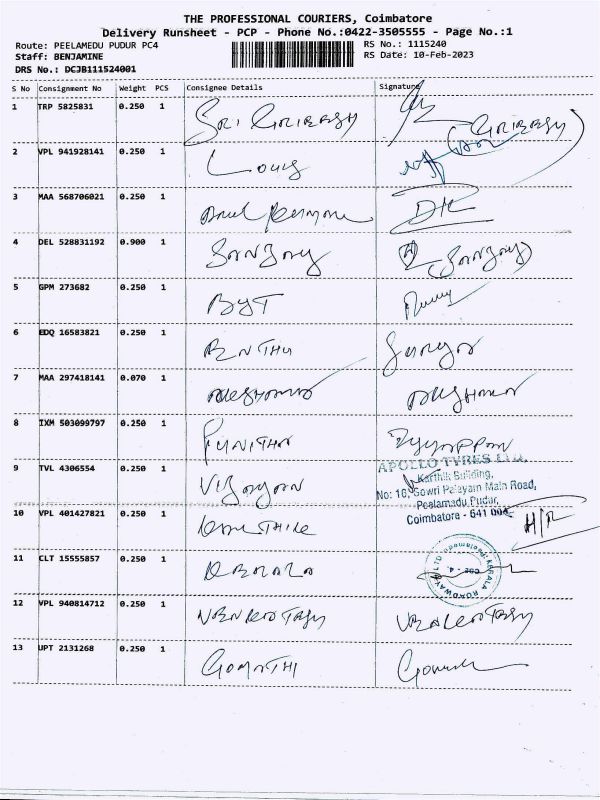 THE PROFESSIONAL COURIERS, Coimbatore
Delivery Runsheet - PCP - Phone No.:0422-3505555 - Page No.:1
Route: PEELAMEDU PUDUR PC4
RS No.: 1115240
Staff: BENJAMINE
RS Date: 10-Feb-2023
DRS No.: DCJB111524001
S No Consignment No Weight PCS Consignee Details Signature
1 TRP 5825831 0.250 1 Sri Giribesy (Giribesy)
2 VPL 941928141 0.250 1 Louis
3 MAA 568706021 0.250 1 DK
4 DEL 528831192 0.900 1 Sanjay (Sanjay)
5 GPM 273682 0.250 1
6 EDQ 16583821 0.250 1
7 MAA 297418141 0.070 1
8 IXM 503099797 0.250 1 Punitha
9 TVL 4306554 0.250 1 Vijayan
APOLLO TYRES LTD.
Karthik Building,
No: 16, Gowri Palayam Main Road,
Peelamadu Pudur,
Coimbatore - 641 004
10 VPL 401427821 0.250 1 H/R
11 CLT 15555857 0.250 1
KERALA ROADWAYS LTD
12 VPL 940814712 0.250 1
13 UPT 2131268 0.250 1 Gomathi